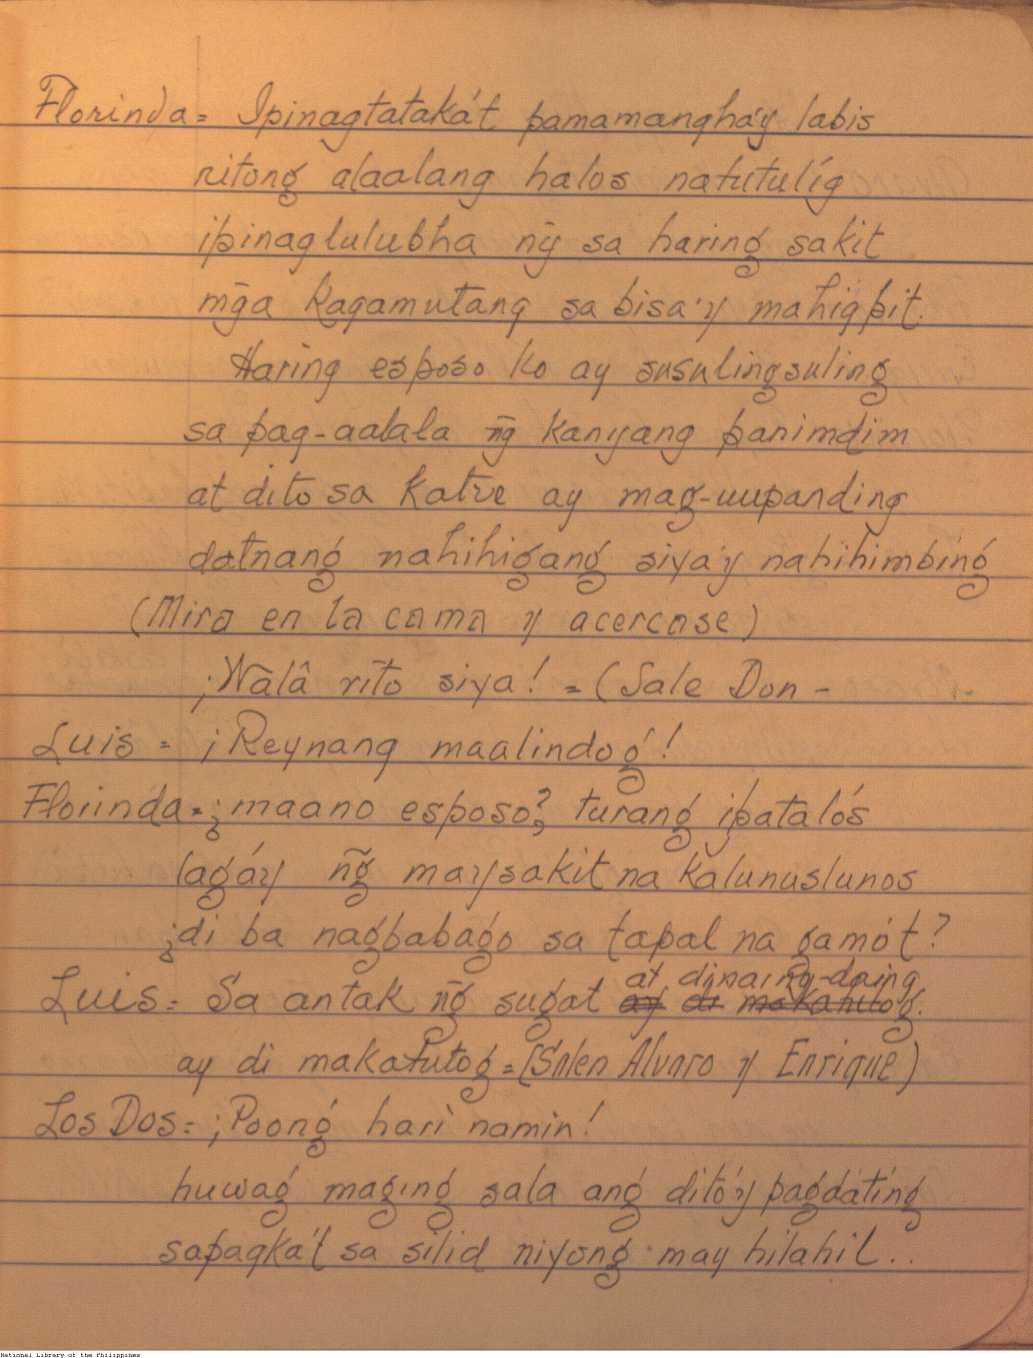 Florinda = Ipinagtataká't pamamanghá'y labis
ritong alaalang halos natutulíg
ipinaglulubha nḡ sa haring sakit
mḡa kagamutang sa bisa'y mahigpit.
Haring esposo ko ay susulingsuling
sa pag-aalala nḡ kanyang panimdim
at dito sa katre ay mag-uupanding
datnang nahihigang siya'y nahihimbíng
(Mira en la cama y acercase)
¡Wālâ rīto siya! = (Sale Don -
Luis = ¡Reynang maalindog!
Florinda = ¿maano esposo? turang ipatalós
lagáy nḡ maysakit na kalunuslunos
¿di ba nagbabago sa tapal na gamót?
at dinaing-daing
Luis = Sa antak nḡ sugat ay di makatutog.
ay di makatutog = (Salen Alvaro y Enrique)
Los Dos = ¡Poong hari namin!
huwag maging sala ang ditó'y pagdáting
sapagka't sa silid niyong may hilahil..
National Library of the Philippines